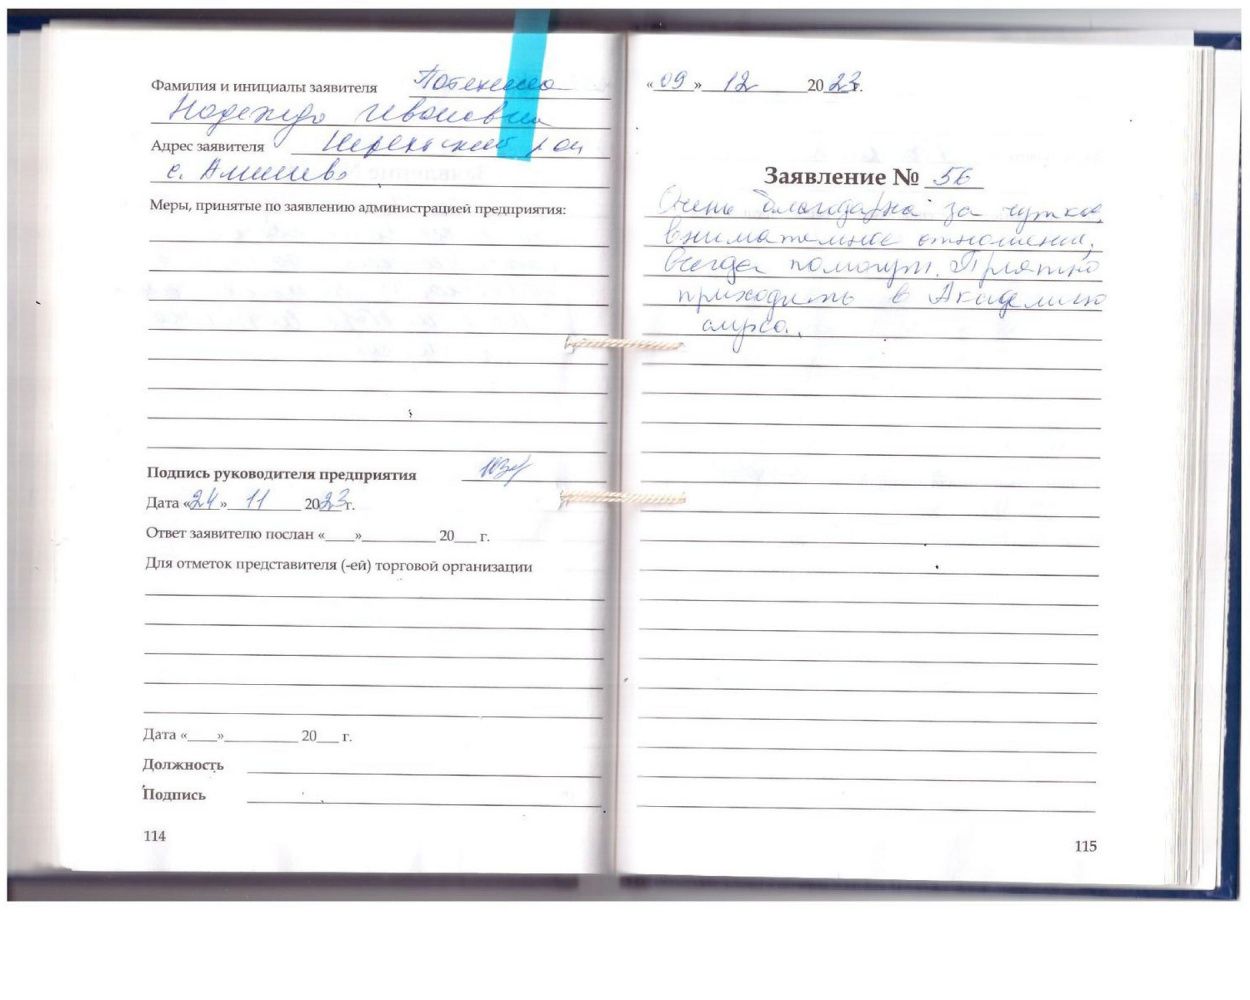 Фамилия и инициалы заявителя Потехина
Надежда Ивановна
Адрес заявителя Нерехтский р он
с.
Меры, принятые по заявлению администрацией предприятия:
Подпись руководителя предприятия
Дата «24» 11 2023 г.
Ответ заявителю послан «___»__________ 20___ г.
Для отметок представителя (-ей) торговой организации
Дата «____»__________ 20___ г.
Должность
Подпись
114
«09» 12 2023 г.
Заявление № 56
Очень благодарна за чуткое,
внимательное отношение,
всегда помогут. Приятно
приходить в Академию
слуха.
115